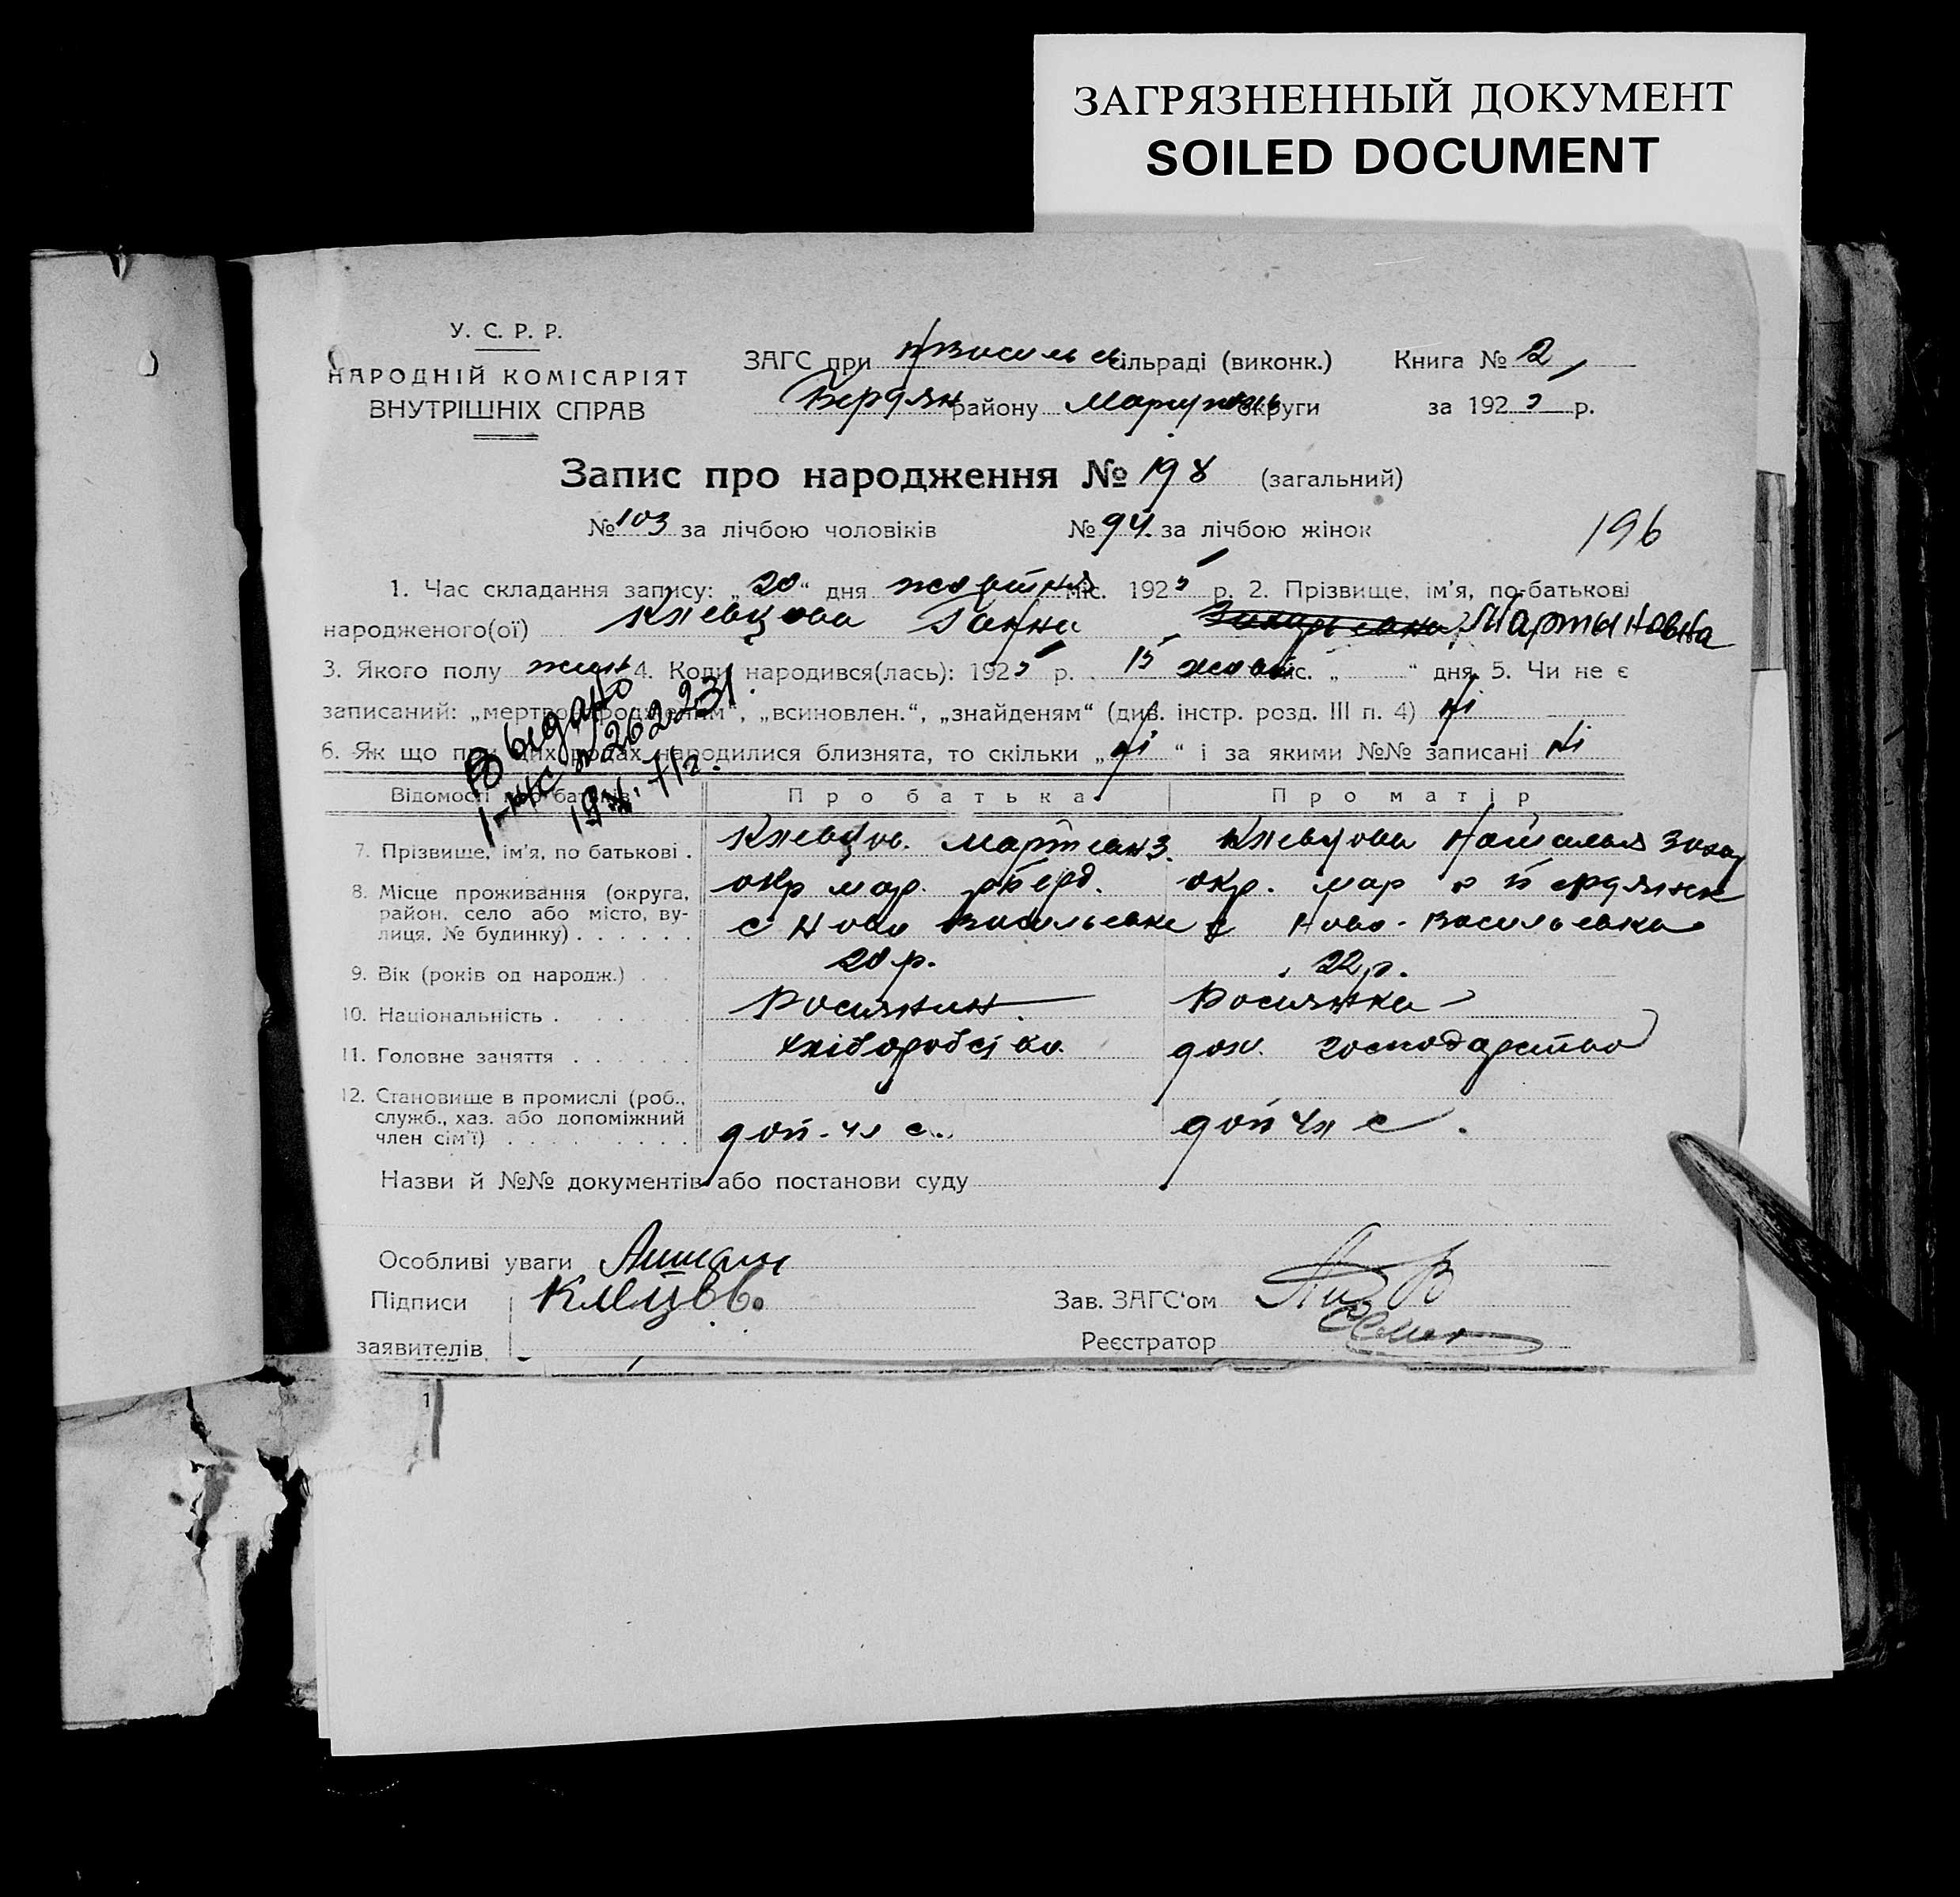 ЗАГРЯЗНЕННЫЙ ДОКУМЕНТ
SOILED DOCUMENT
У. С. Р. Р.
НАРОДНІЙ КОМІСАРІЯТ
ВНУТРІШНІХ СПРАВ
ЗАГС при НВасильев сільраді (виконк.) Книга № 2
Бердян району Маріупольь округи за 1925 р.
Запис про народження № 198 (загальний)
№ 103 за лічбою чоловіків № 94. за лічбою жінок
196
1. Час складання запису: „20“ дня жовтня міс. 1925 р. 2. Прізвище, ім'я, по-батькові
народженого(ої) Клевцова Ганна Захарьевна Мартыновна
3. Якого полу жин 4. Коли народився(лась): 1925 р. 15 жовт міс. „ “ дня. 5. Чи не є
записаний: „мертвонародженим“, „всиновлен.“, „знайденям“ (див. інстр. розд. III п. 4) Ні
6. Як що при цих родах народилися близнята, то скільки „ні“ і за якими №№ записані Ні
Выдано
№ 262231
Відомості про батьків Про батька Про матір
7. Прізвище, ім'я, по батькові . Клевцов. Март З. Клевцова Наталья Захар
8. Місце проживання (округа, район, село або місто, вулиця, № будинку) . . . . . . окр мар. р Берд. окр. мар р Бердянск
с Ново Васильевке с Ново-Васильевка
9. Вік (років од народж.) . . 20 р. 22 р.
10. Національність . . . . . . Росиянин. Росиянка
11. Головне заняття . . . . . . хліборобство. дом. господарство
12. Становище в промислі (роб., служб., хаз. або допоміжний член сім'ї) . . . . . . . . . доп. чл с. доп чл с.
Назви й №№ документів або постанови суду
Особливі уваги
Підписи
Зав. ЗАГС'ом
заявителів
Реєстратор
1